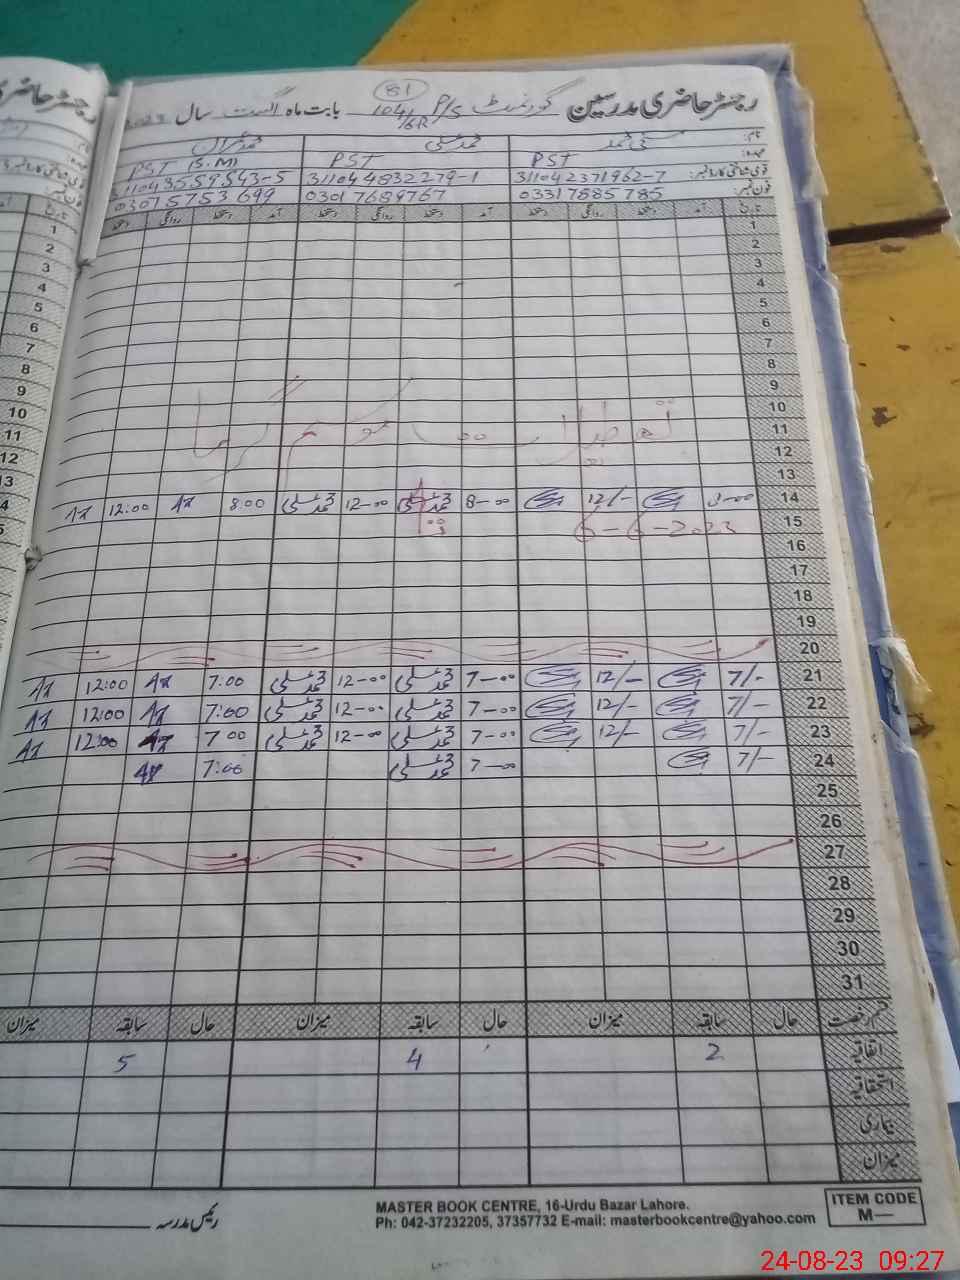 رجسٹر حاضری مدرسین گورنمنٹ P/S 104/6R بابت ماہ اگست سال 2023
81
نام:
عہدہ: PST PST PST (S.M)
قومی شناختی کارڈ نمبر: 311042371962-7 311044832279-1 311043559543-5
فون نمبر: 03317885785 03017689767 03015753699
تاریخ آمد دستخط روانگی دستخط آمد دستخط روانگی دستخط آمد دستخط روانگی دستخط
1
2
3
4
5
6
7
8
9
10
11
12
13
14 8-00 12/- 8-00 محمد علی 12-00 محمد علی 8:00 12:00
15 6-6-2023
16
17
18
19
20
21 7/- 12/- 7-00 محمد علی 12-00 محمد علی 7:00 12:00
22 7/- 12/- 7-00 محمد علی 12-00 محمد علی 7:00 12:00
23 7/- 12/- 7-00 محمد علی 12-00 محمد علی 7 00 12:00
24 7/- 7-00 محمد علی 7:00
25
26
27
28
29
30
31
قسم رخصت حال سابقہ میزان حال سابقہ میزان حال سابقہ میزان
اتفاقیہ 2 4 5
استحقاقیہ
بیماری
میزان
رئیس مدرسہ
MASTER BOOK CENTRE, 16-Urdu Bazar Lahore.
Ph: 042-37232205, 37357732 E-mail: masterbookcentre@yahoo.com
ITEM CODE
M—
24-08-23 09:27